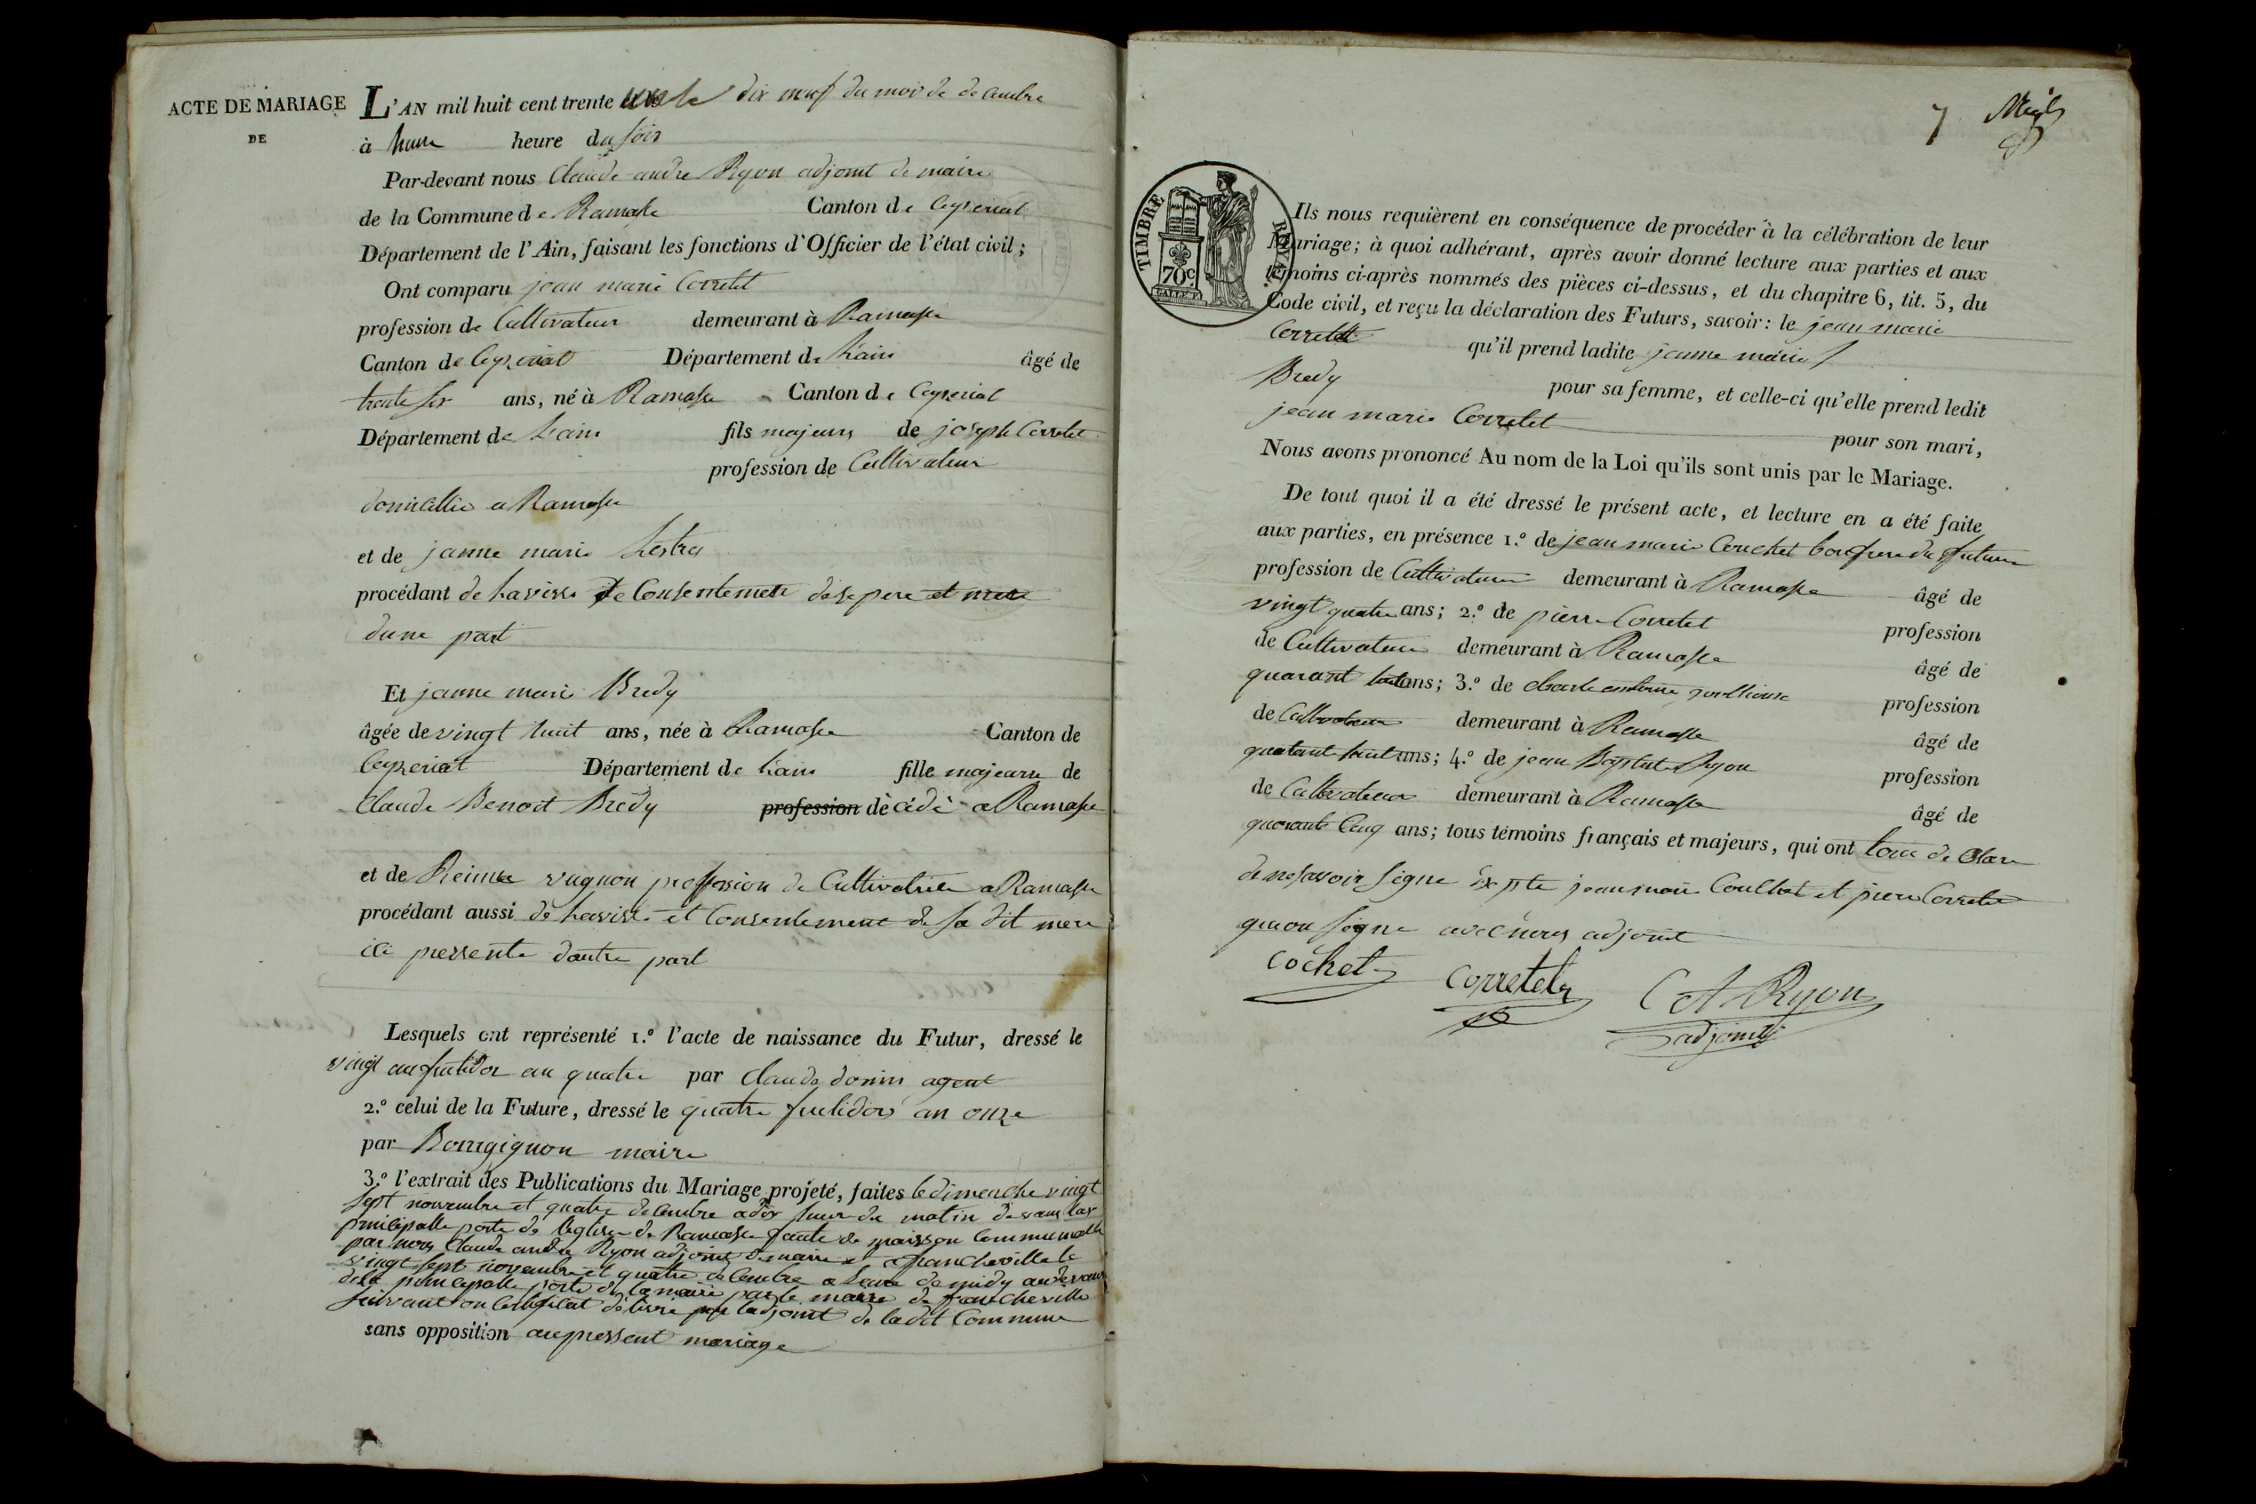 ACTE DE MARIAGE
DE
L'AN mil huit cent trente un le dix neuf du mois de decembre
à hune heure du soir
Par-devant nous Claude andre Ryon adjoint de maire
de la Commune de Ramasse Canton de Ceyseriat
Département de l'Ain, faisant les fonctions d'Officier de l'état civil;
Ont comparu jean marie Corretet
profession de Cultivateur demeurant à Ramasse
Canton de Ceyseriat Département de hain âgé de
trente six ans, né à Ramasse Canton de Ceyseriat
Département de hain fils majeurs de joseph Corretet
profession de Cultivateur
domicillie a Ramasse
et de janne marie
procédant de lavisse de Consentement de se pere et mere
dune part
Et janne marie Bredy
âgée de vingt huit ans, née à Ramasse Canton de
Ceyseriat Département de hain fille majeure de
Claude Benoit Bredy profession dècédè a Ramasse
et de Reinne vugnon profession de Cultivatrice a Ramasse
procédant aussi de lavisse et Consentement de sa dit mere
ici pressente dautre part
Lesquels ont représenté 1.º l'acte de naissance du Futur, dressé le
vingt an quatre par Claude donin agent
2.º celui de la Future, dressé le quatre an onze
par Bourgignon maire
3.º l'extrait des Publications du Mariage projeté, faites le dimenche vingt
sept novembre et quatre decembre a dix heur du matin devant lar
principalle porte de leglise de Ramasse faute de maison Communalle
par nous Claude andre Ryon adjoint de maire et a francheville le
vingt sept novembre et quatre decembre a heure de midy au devant
de la principalle porte de la maire par le maire de francheville
suivant on Certificat delivre par ladjoint de ladit Commune
sans opposition au pressent mariage
7
TIMBRE ROYAL
70c
Ils nous requièrent en conséquence de procéder à la célébration de leur
Mariage; à quoi adhérant, après avoir donné lecture aux parties et aux
témoins ci-après nommés des pièces ci-dessus, et du chapitre 6, tit. 5, du
Code civil, et reçu la déclaration des Futurs, savoir: le jean marie
Corretet qu'il prend ladite janne marie
Bredy pour sa femme, et celle-ci qu'elle prend ledit
jean marie Corretet pour son mari,
Nous avons prononcé Au nom de la Loi qu'ils sont unis par le Mariage.
De tout quoi il a été dressé le présent acte, et lecture en a été faite
aux parties, en présence 1.º de jean marie Couchet du future
profession de Cultivateur demeurant à Ramasse âgé de
vingt quatre ans; 2.º de pierre Corretet profession
de Cultivateur demeurant à Ramasse âgé de
quarant ans; 3.º de profession
de Cultivateur demeurant à Ramasse âgé de
quatante huit ans; 4.º de jean Baptiste Ryon profession
de Cultivateur demeurant à Ramasse âgé de
quarante Cinq ans; tous témoins français et majeurs, qui ont tous de Clare
de ne savoir signe jean marie Couchet et pierre Corretet
qui on signe avec nous adjoint
Cochet
Corretet
C A Ryon
adjoint